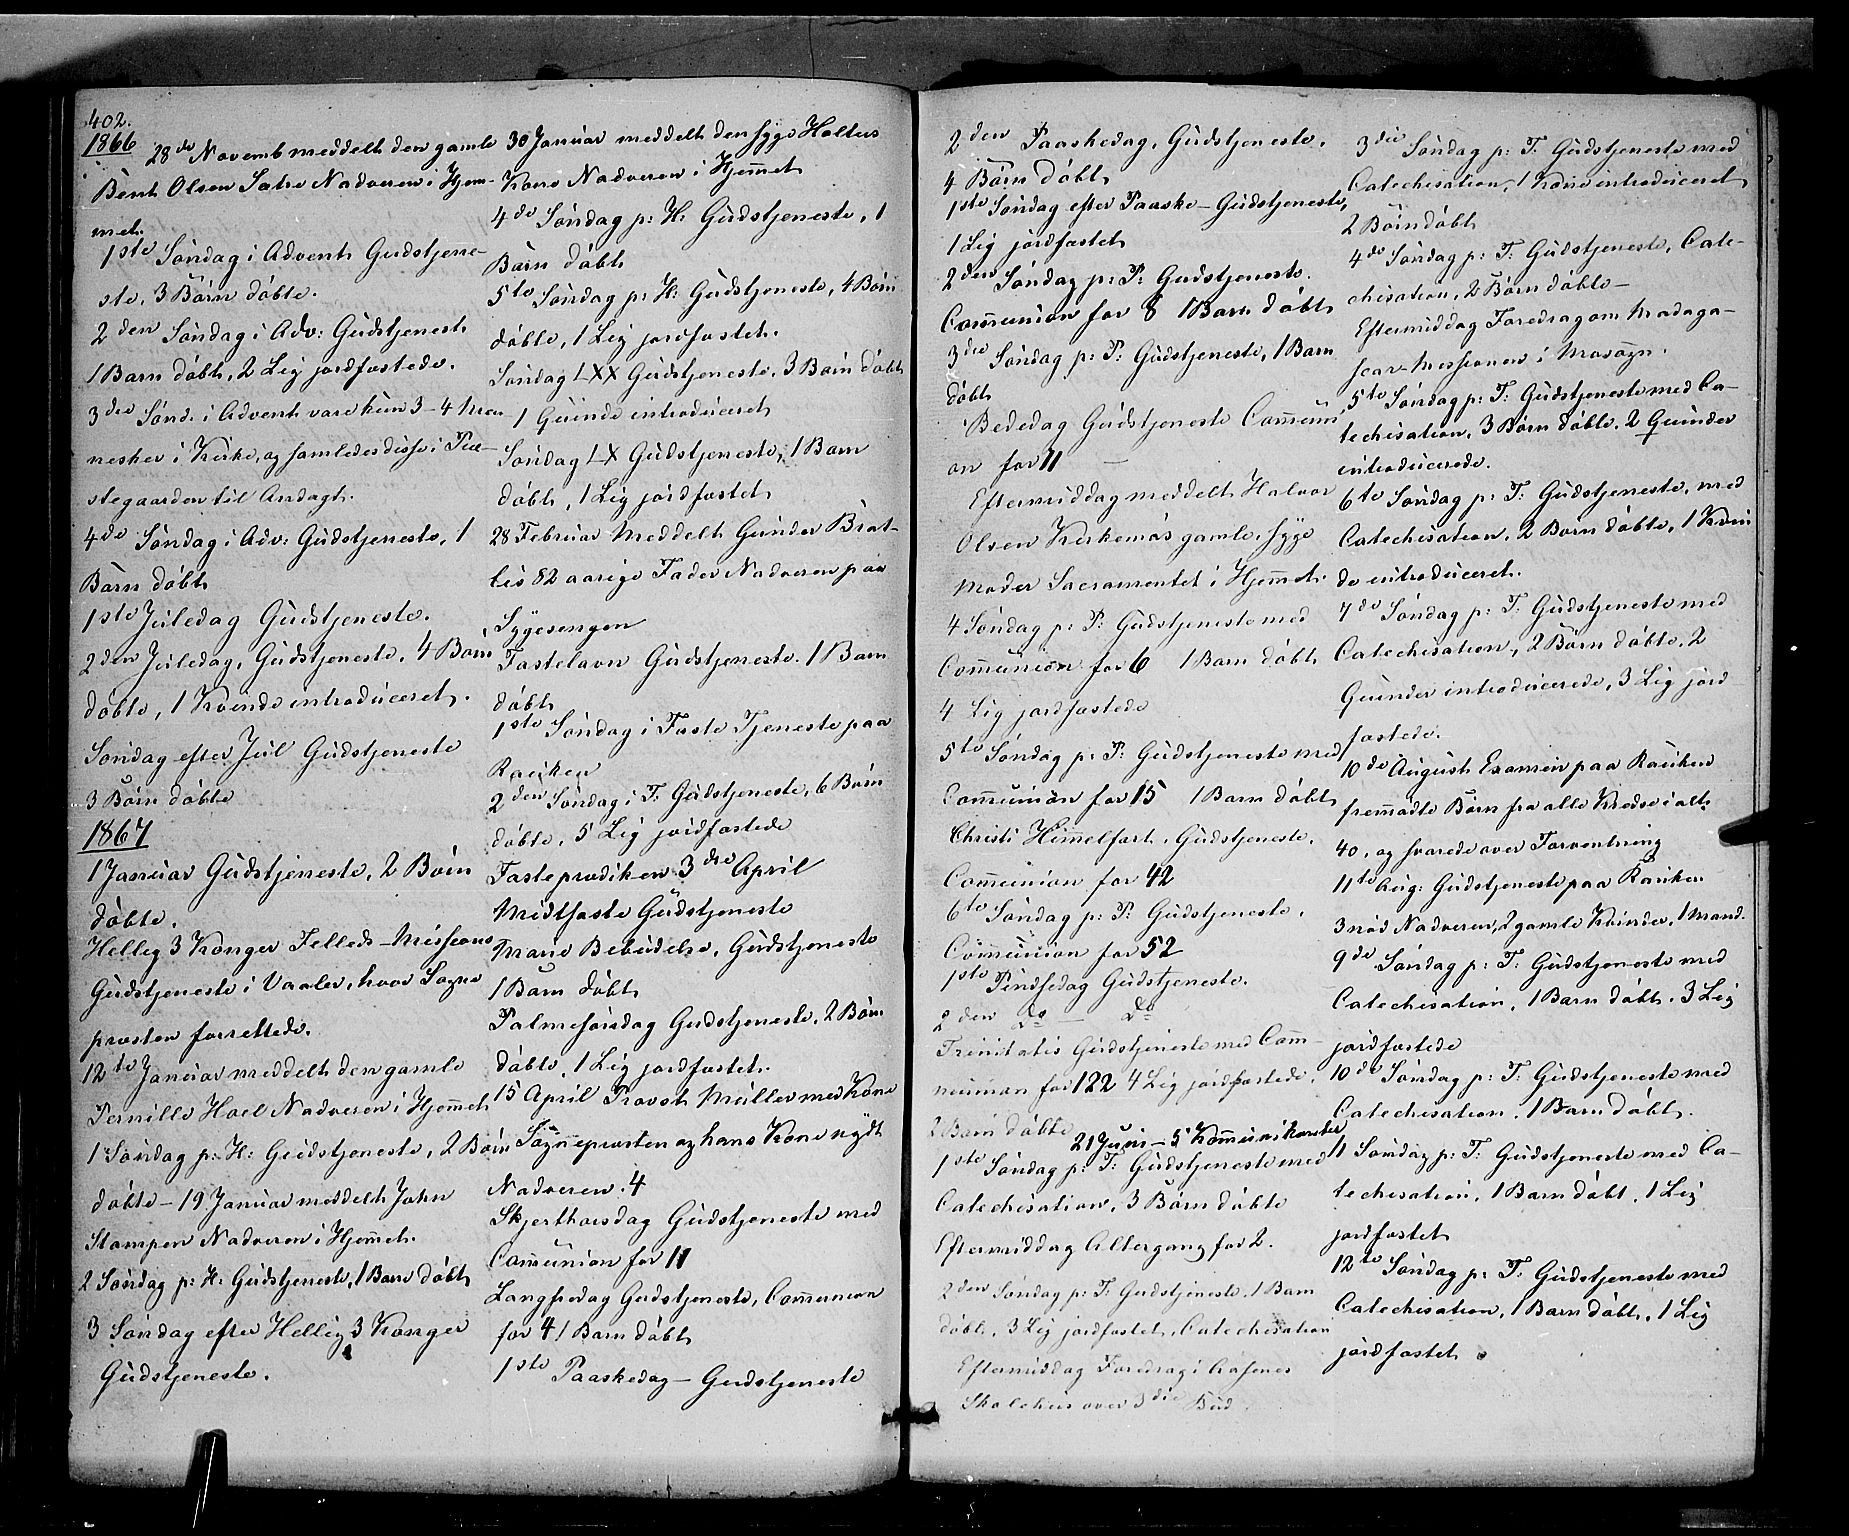 402.
1866
28de Novemb meddelt den gamle
Bent Olsen Sætre Nadveren i Hjem-
met.
1ste Søndag i Advent Gudstjene-
ste, 3 Børn døbte.
2den Søndag i Adv: Gudstjenest
1 Barn døbt, 2 Lig jordfæstede.
3die Sønd: i Advent vare kun 3-4 Men
nesker i Kirke, og samledes disse i Præ-
stegaarden til Andagt.
4de Søndag i Adv: Gudstjeneste, 1
Barn døbt
1ste Juledag Gudstjeneste.
2den Juledag, Gudstjeneste, 4 Børn
døbte, 1 Kvinde introduceret.
Søndag efter Jul Gudstjeneste
3 Børn døbte
1867
1 Januar Gudstjeneste, 2 Børn
døbte.
Hellig 3 Konger Felleds-Missions
Gudstjeneste i Vaaler, hvor Sogne
præsten forrettede.
12te Januar meddelt den gamle
Pernille Hoel Nadveren i Hjemmet
1 Søndag p: H: Gudstjeneste, 2 Børn
døbte - 19 Januar meddelt John
Stampen Nadveren i Hjemmet.
2 Søndag p: H: Gudstjeneste, 1 Barn døbt
3 Søndag efter Hellig 3 Konger
Gudstjeneste.
30 Januar meddelt den syge Holtus
Kone Nadveren i Hjemmet
4de Søndag p: H: Gudstjeneste, 1
Barn døbt
5te Søndag p: H: Gudstjeneste, 4 Børn
døbte, 1 Lig jordfæstet.
Søndag LXX Gudstjeneste, 3 Børn døbt
1 Quinde introduceret
Søndag LX Gudstjeneste, 1 Barn
døbt, 1 Lig jordfæstet
28 Februar Meddelt Gunder Brat-
lis 82 aarige Fader Nadveren paa
Sygesengen
Fastelavn Gudstjeneste. 1 Barn
døbt
1ste Søndag i Faste Tjeneste paa
Rauken
2den Søndag i F: Gudstjeneste, 6 Børn
døbte, 5 Lig jordfæstede
Fasteprædiken 3die April
Midtfaste Gudstjeneste
Mariæ Bebudelse, Gudstjeneste
1 Barn døbt
Palmesøndag Gudstjeneste, 2 Børn
døbte, 1 Lig jordfæstet.
15 April Provst Müller med Kone
Sognepræsten og hans Kone nydt
Nadveren. 4
Skjerthorsdag Gudstjeneste med
Communion for 11
Langfredag Gudstjeneste, Communion
for 4 1 Barn døbt
1ste Paaskedag - Gudstjeneste
2den Paaskedag, Gudstjeneste,
4 Børn døbt
1ste Søndag efter Paaske - Gudstjeneste,
1 Lig jordfæstet
2den Søndag p: P: Gudstjeneste.
Communion for 8 1 Barn døbt
3die Søndag p: P: Gudstjeneste, 1 Barn
døbt
Bededag Gudstjeneste Communi
on for 11
Eftermiddag meddelt Halvor
Olsen Kirkemos gamle, syge
Moder Sacramentet i Hjemmet.
4 Søndag p: P: Gudstjeneste med
Communion for 6 1 Barn døbt
4 Lig jordfæstede
5te Søndag p: P: Gudstjeneste med
Communion for 15 1 Barn døbt
Christi Himmelfart, Gudstjeneste.
Communion for 42
6te Søndag p: P: Gudstjeneste.
Communion for 52
1ste Pindsedag Gudstjeneste.
2den Do - Do
Trinitatis Gudstjeneste med Com-
munion for 122 4 Lig jordfæstede,
2 Børn døbte
21 Juni - 5 Kommunikanter
1ste Søndag p: T: Gudstjeneste med
Catechisation, 3 Børn døbte
Eftermiddag Altergang for 2.
2den Søndag p: T: Gudstjeneste, 1 Barn
døbt, 3 Lig jordfæstet, Catechisation
Eftermiddag Foredrag i Aasenes
Skolehus over 3die Bud
3die Søndag p: T: Gudstjeneste med
Catechisation, 1 Kone introduceret
2 Børn døbt
4de Søndag p: T: Gudstjeneste, Cate-
chisation, 2 Børn døbte -
Eftermiddag Foredrag om Madaga-
scar-Missionen i Mosogn.
5te Søndag p: T: Gudstjeneste med Ca-
techisation, 3 Børn døbte. 2 Quinder
introducerede.
6te Søndag p: T: Gudstjeneste, med
Catechisation, 2 Børn døbte, 1 Kvin
de introduceret.
7de Søndag p: T: Gudstjeneste med
Catechisation, 2 Børn døbte, 2
Quinder introducerede, 3 Lig jord
fæstede.
10de August Examen paa Rauken
fremmødte Børn fra alle Kredse i alt
40, og svarede over Forventning
11te Aug: Gudstjeneste paa Rauken
3 nød Nadveren, 2 gamle Kvinder, 1 Mand.
9de Søndag p: T: Gudstjeneste med
Catechisation, 1 Barn døbt. 3 Lig
jordfæstede
10de Søndag p: T: Gudstjeneste med
Catechisation, 1 Barn døbt.
11 Søndag p: T: Gudstjeneste med Ca-
techisation, 1 Barn døbt, 1 Lig
jordfæstet
12te Søndag p: T: Gudstjeneste med
Catechisation, 1 Barn døbt, 1 Lig
jordfæstet